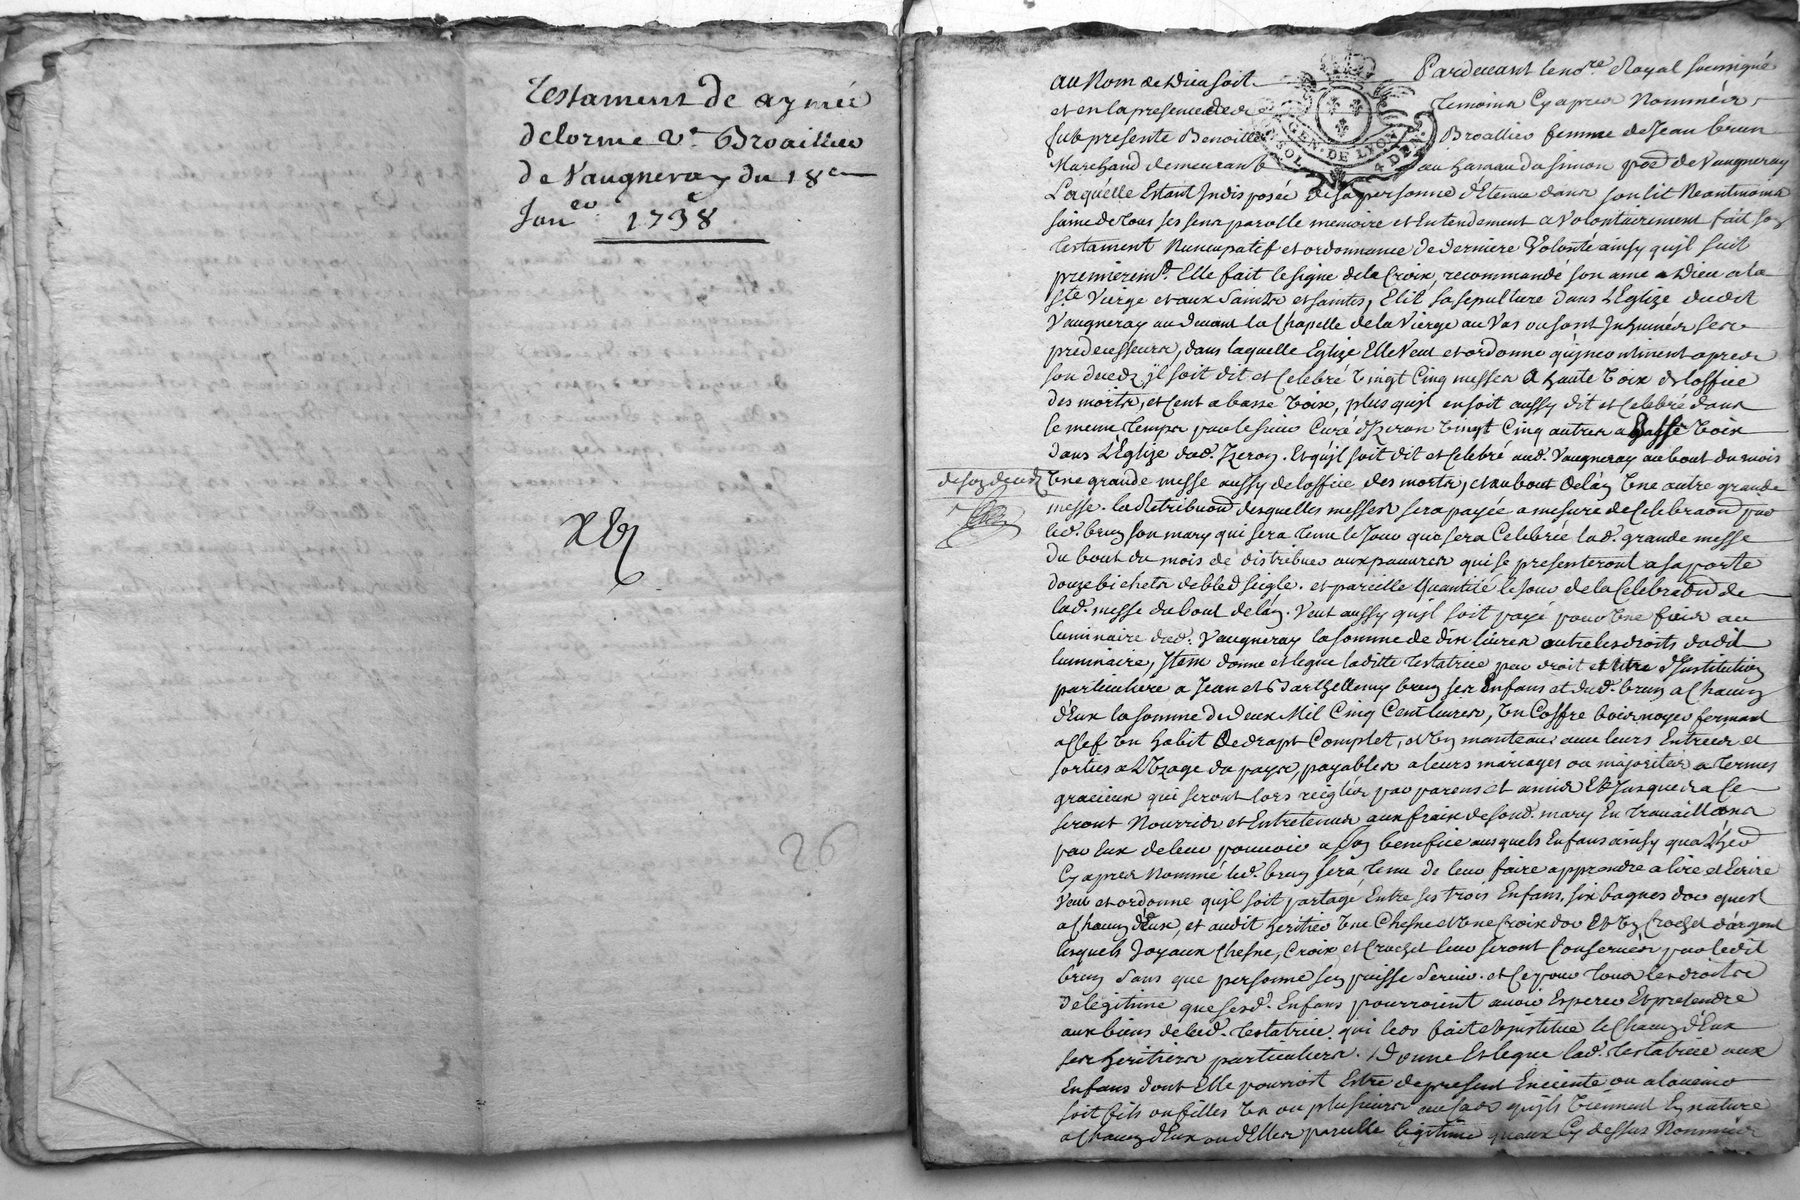 Testament de aymée
delorme Ve. Broaillier
de Vaugneray du 18e
Janer 1738
26
au Nom de Dieu soit Pardevant le nore Royal soussigné
et en la presence des temoins Cy apres Nommés
fut presente Benoitte Broallier femme de Jean brun
Marchand demeurant au hameau du simon psse de Vaugneray
Laquelle Estant Indisposée de sa personne detenue dans son lit Neantmoins
saine de tous ses sens parolle memoire et Entendement a volontairement fait son
testament Nuncupatif et ordonnance de derniere Volonté ainsy qu'jl suit
premieremt. Elle fait le signe de la Croix, recommandé son ame a Dieu a la
ste Vierge et aux Saints et saintes, Elit sa sepulture dans L'Eglize dudit
Vaugneray au devant la Chapelle de la Vierge au Vas ou sont Inhumés ses
predecesseurs, dans laquelle Eglize Elle Veut et ordonne qu'jncontinent apres
son decedz jl soit dit et Celebré Vingt Cinq messes a haute Voix de l'office
des morts, et Cent a basse Voix, plus qu'jl en soit aussy dit et Celebré dans
le meme temps par le sieur Curé d'Izeron Vingt Cinq autres a Basse Voix
dans L'Eglize dud. Izeron. Et qu'jl soit dit et Celebré aud. Vaugneray au bout du mois
de son decedz
Une grande messe aussy de l'office des morts, et au bout de l'an Une autre grande
messe. la Retribuon desquelles messes sera payée a mesure de Celebraon par
led. brun son mary qui sera tenu le Jour que sera Celebrée lad. grande messe
du bout du mois de distribuer aux pauvres qui se presenteront a sa porte
douze bichets de bled seigle. et pareille Quantité le Jour de la Celebraon de
lad. messe du bout de l'an. Veut aussy qu'jl soit payé pour Une fois au
luminaire dud. Vaugneray la somme de dix livres outre les droits dudit
luminaire, Item donne et legue laditte testatrice par droit et titre d'Institution
particuliere a Jean et Barthellemy brun ses Enfans et dud. brun a Chacun
d'Eux la somme de deux Mil Cinq Cent livres, Un Coffre bois noyer fermant
a Clef Un habit de drapt Complet, et Un manteau, avec leurs Entrées et
sorties a L'Uzage du pays, payables a leurs mariages ou majorites a termes
gracieux qui seront lors reiglés par parens et amis Et Jusques a Ce
seront Nourris et Entretenus aux fraix de sond. mary En travaillans
par Eux de leur pouvoir a son benefice ausquels Enfans ainsy qu'a L'her
Cy apres Nommé led. brun sera tenu de leur faire apprendre a lire et Ecrire
Veut et ordonne qu'jl soit partagé Entre ses trois Enfans, six bagues d'or quest
a Chacun d'Eux, et audit heritier Une Chesne et Une Croix d'or Et Un Crochet d'argent
lesquels Joyaux Chesne, Croix et Crochet leur seront Conservés par ledit
brun sans que personne s'en puisse servir. et Ce pour tous les droits
de legitime que sesd. Enfans pourroient avoir Esperer Et pretendre
aux biens de lad. testatrice qui les fait et institue le Chacun d'Eux
ses heritiers particuliers. Donne Et legue lad. testatrice aux
Enfans dont Elle pourroit Estre de present Enceinte ou a l'avenir
soit fils ou filles Un ou plusieurs au Cas qu'jls Viennent En nature
a Chacun d'Eux ou d'Elles pareille legitime qu'aux Cy dessus Nommés